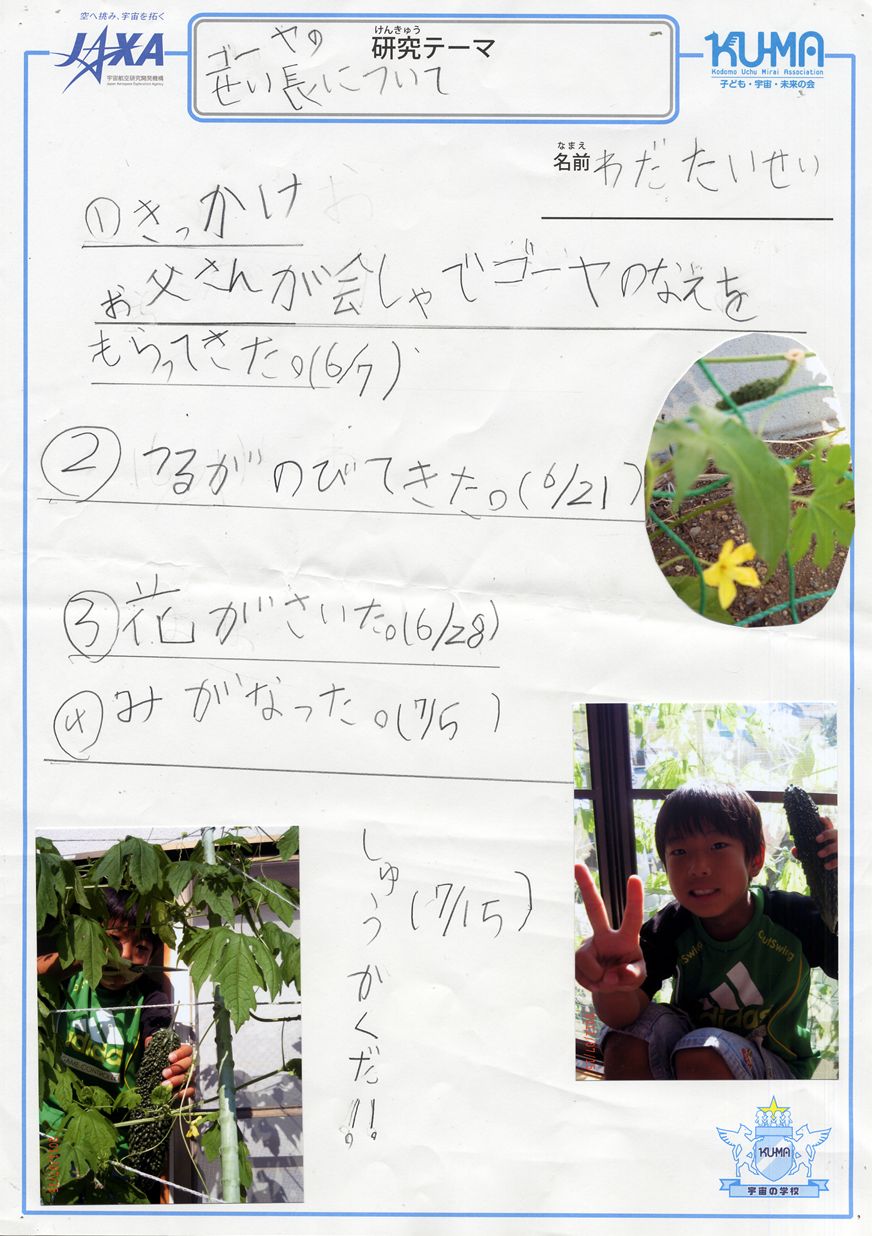 空へ挑み、宇宙を拓く
JAXA
宇宙航空研究開発機構
Japan Aerospace Exploration Agency
けんきゅう
研究テーマ
ゴーヤの
せい長について
KU-MA
Kodomo Uchu Mirai Association
子ども・宇宙・未来の会
なまえ
名前 わだ たいせい
①きっかけ
お父さんが会しゃでゴーヤのなえを
もらってきた。(6/7)
②つるがのびてきた。(6/21)
③花がさいた。(6/28)
④みがなった。(7/5)
しゅうかくだ!!
(7/15)
Swing
OutSwing
adidas
adidas
KU-MA
宇宙の学校